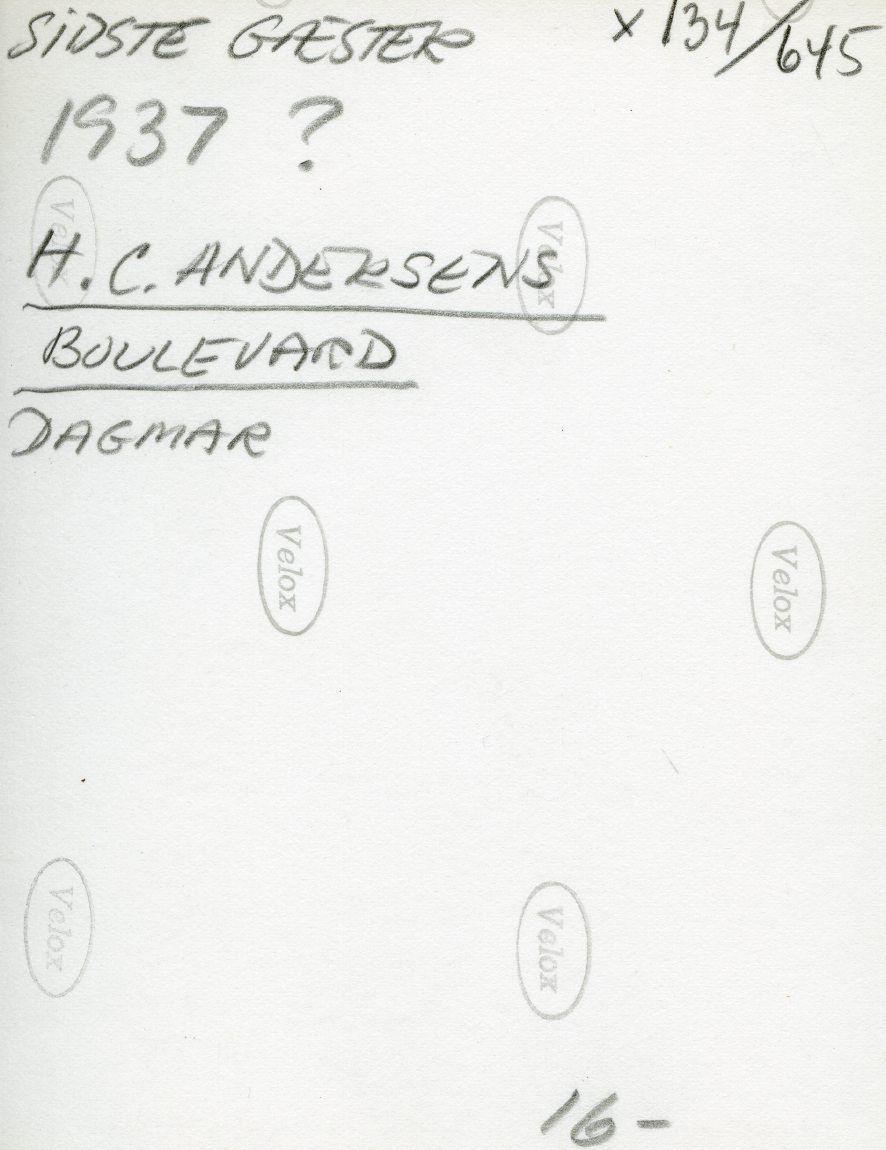 SIDSTE GÆSTER
x 134/645
1937 ?
H.C. ANDERSENS
BOULEVARD
DAGMAR
Velox
Velox
Velox
Velox
Velox
Velox
16-